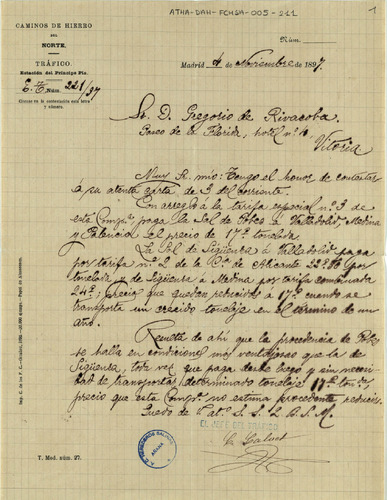 ATHA-DAH-FCHSA-005-211
1
CAMINOS DE HIERRO
DEL
NORTE.
TRÁFICO.
Estación del Príncipe Pío.
E. T. Núm. 221/97
Sírvase en la contestación citar letra
y número.
Núm.
Madrid 4 de Noviembre de 1897.
Sr. D. Gregorio de Rivacoba
Paseo de la Florida, hotel nº
Vitoria
Muy Sr. mío: Tengo el honor de contestar
á su atenta carta de 3 del corriente.
Con arreglo á la tarifa especial nº 3 de
esta Compª, paga la Sal de Pobes á Valladolid, Medina
y Palencia el precio de 17 tonelada
La Sal de Sigüenza á Valladolid paga
por tarifa nº 2 de la Rº de Alicante 22 por
tonelada y de Sigüenza á Medina por tarifa combinada
24, precios que quedan reducidos á 17 cuando se
transporta un crecido tonelaje en el término de un
año.
Resulta de ahí que la procedencia de Pobes
se halla en condiciones más ventajosas que la de
Sigüenza, toda vez que paga desde luego y sin nece-
sidad de transportar determinado tonelaje 17 ton
precio que esta Compª no estima procedente reducir.
Quedo de V. atº S. S. Q. B. S. M.
EL JEFE DEL TRÁFICO
T. Med. núm. 27.